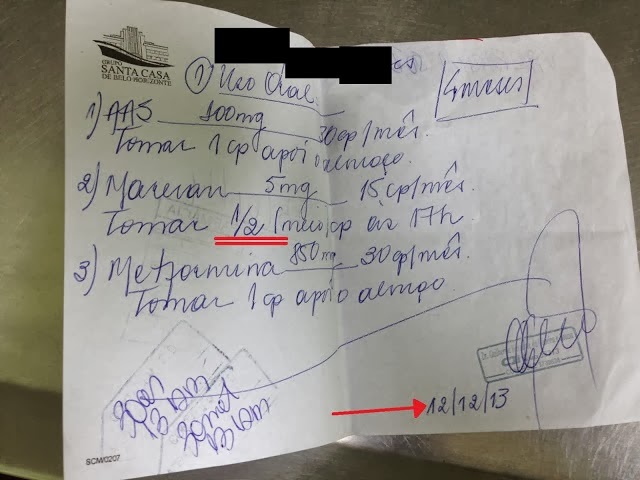 GRUPO
SANTA CASA
DE BELO HORIZONTE
1) Uso Oral
4 meses
1) AAS 100mg 30cp/mês.
Tomar 1 cp após almoço.
2) Marevan 5mg 15cp/mês.
Tomar 1/2 (meio) cp às 17h
3) Metformina 850mg 30cp/mês.
Tomar 1 cp após almoço.
12/12/13
SCM/0207